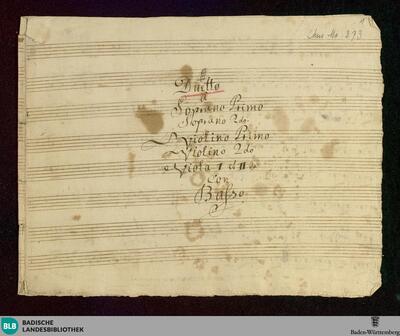 Duetto
a
Soprano Primo
Soprano 2do
Violino Primo
Violino 2do
Viola I et II
Con
Basso
BLB
BADISCHE
LANDESBIBLIOTHEK
Baden-Württemberg